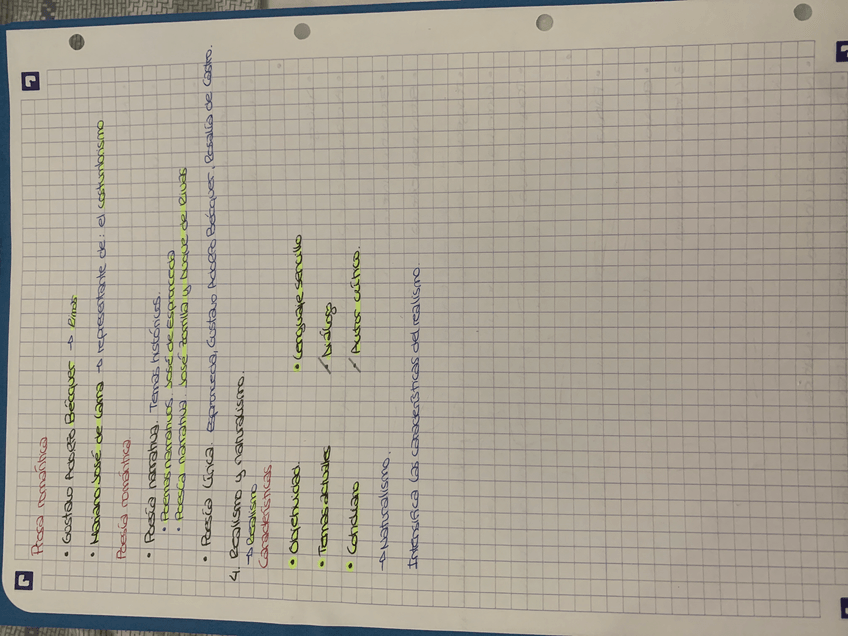 Prosa romántica
• Gustavo Adolfo Bécquer → Rimas
• Mariano José de Larra → representante de: el costumbrismo
Poesía romántica
• Poesía narrativa. Temas históricos.
• Poemas narrativos. José de espronceda
• Poesía narrativa. José Zorrilla y Duque de Rivas
• Poesía lírica. Espronceda, Gustavo Adolfo Bécquer, Rosalía de Castro.
4. Realismo y naturalismo.
→ Realismo
Características.
• Objetividad. • Lenguaje sencillo
• Temas actuales / Diálogo
• Cotidiano / Autor crítico.
→ Naturalismo.
Intensifica las características del realismo.